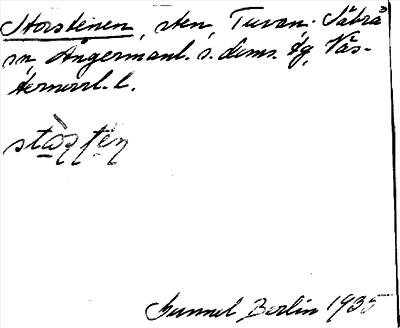 Storstenen, sten, Tuvan, Säbrå
sn, Ångermanl. s. doms. tg, Väs-
ternorrl. l.
Gunnel Berlin 1935